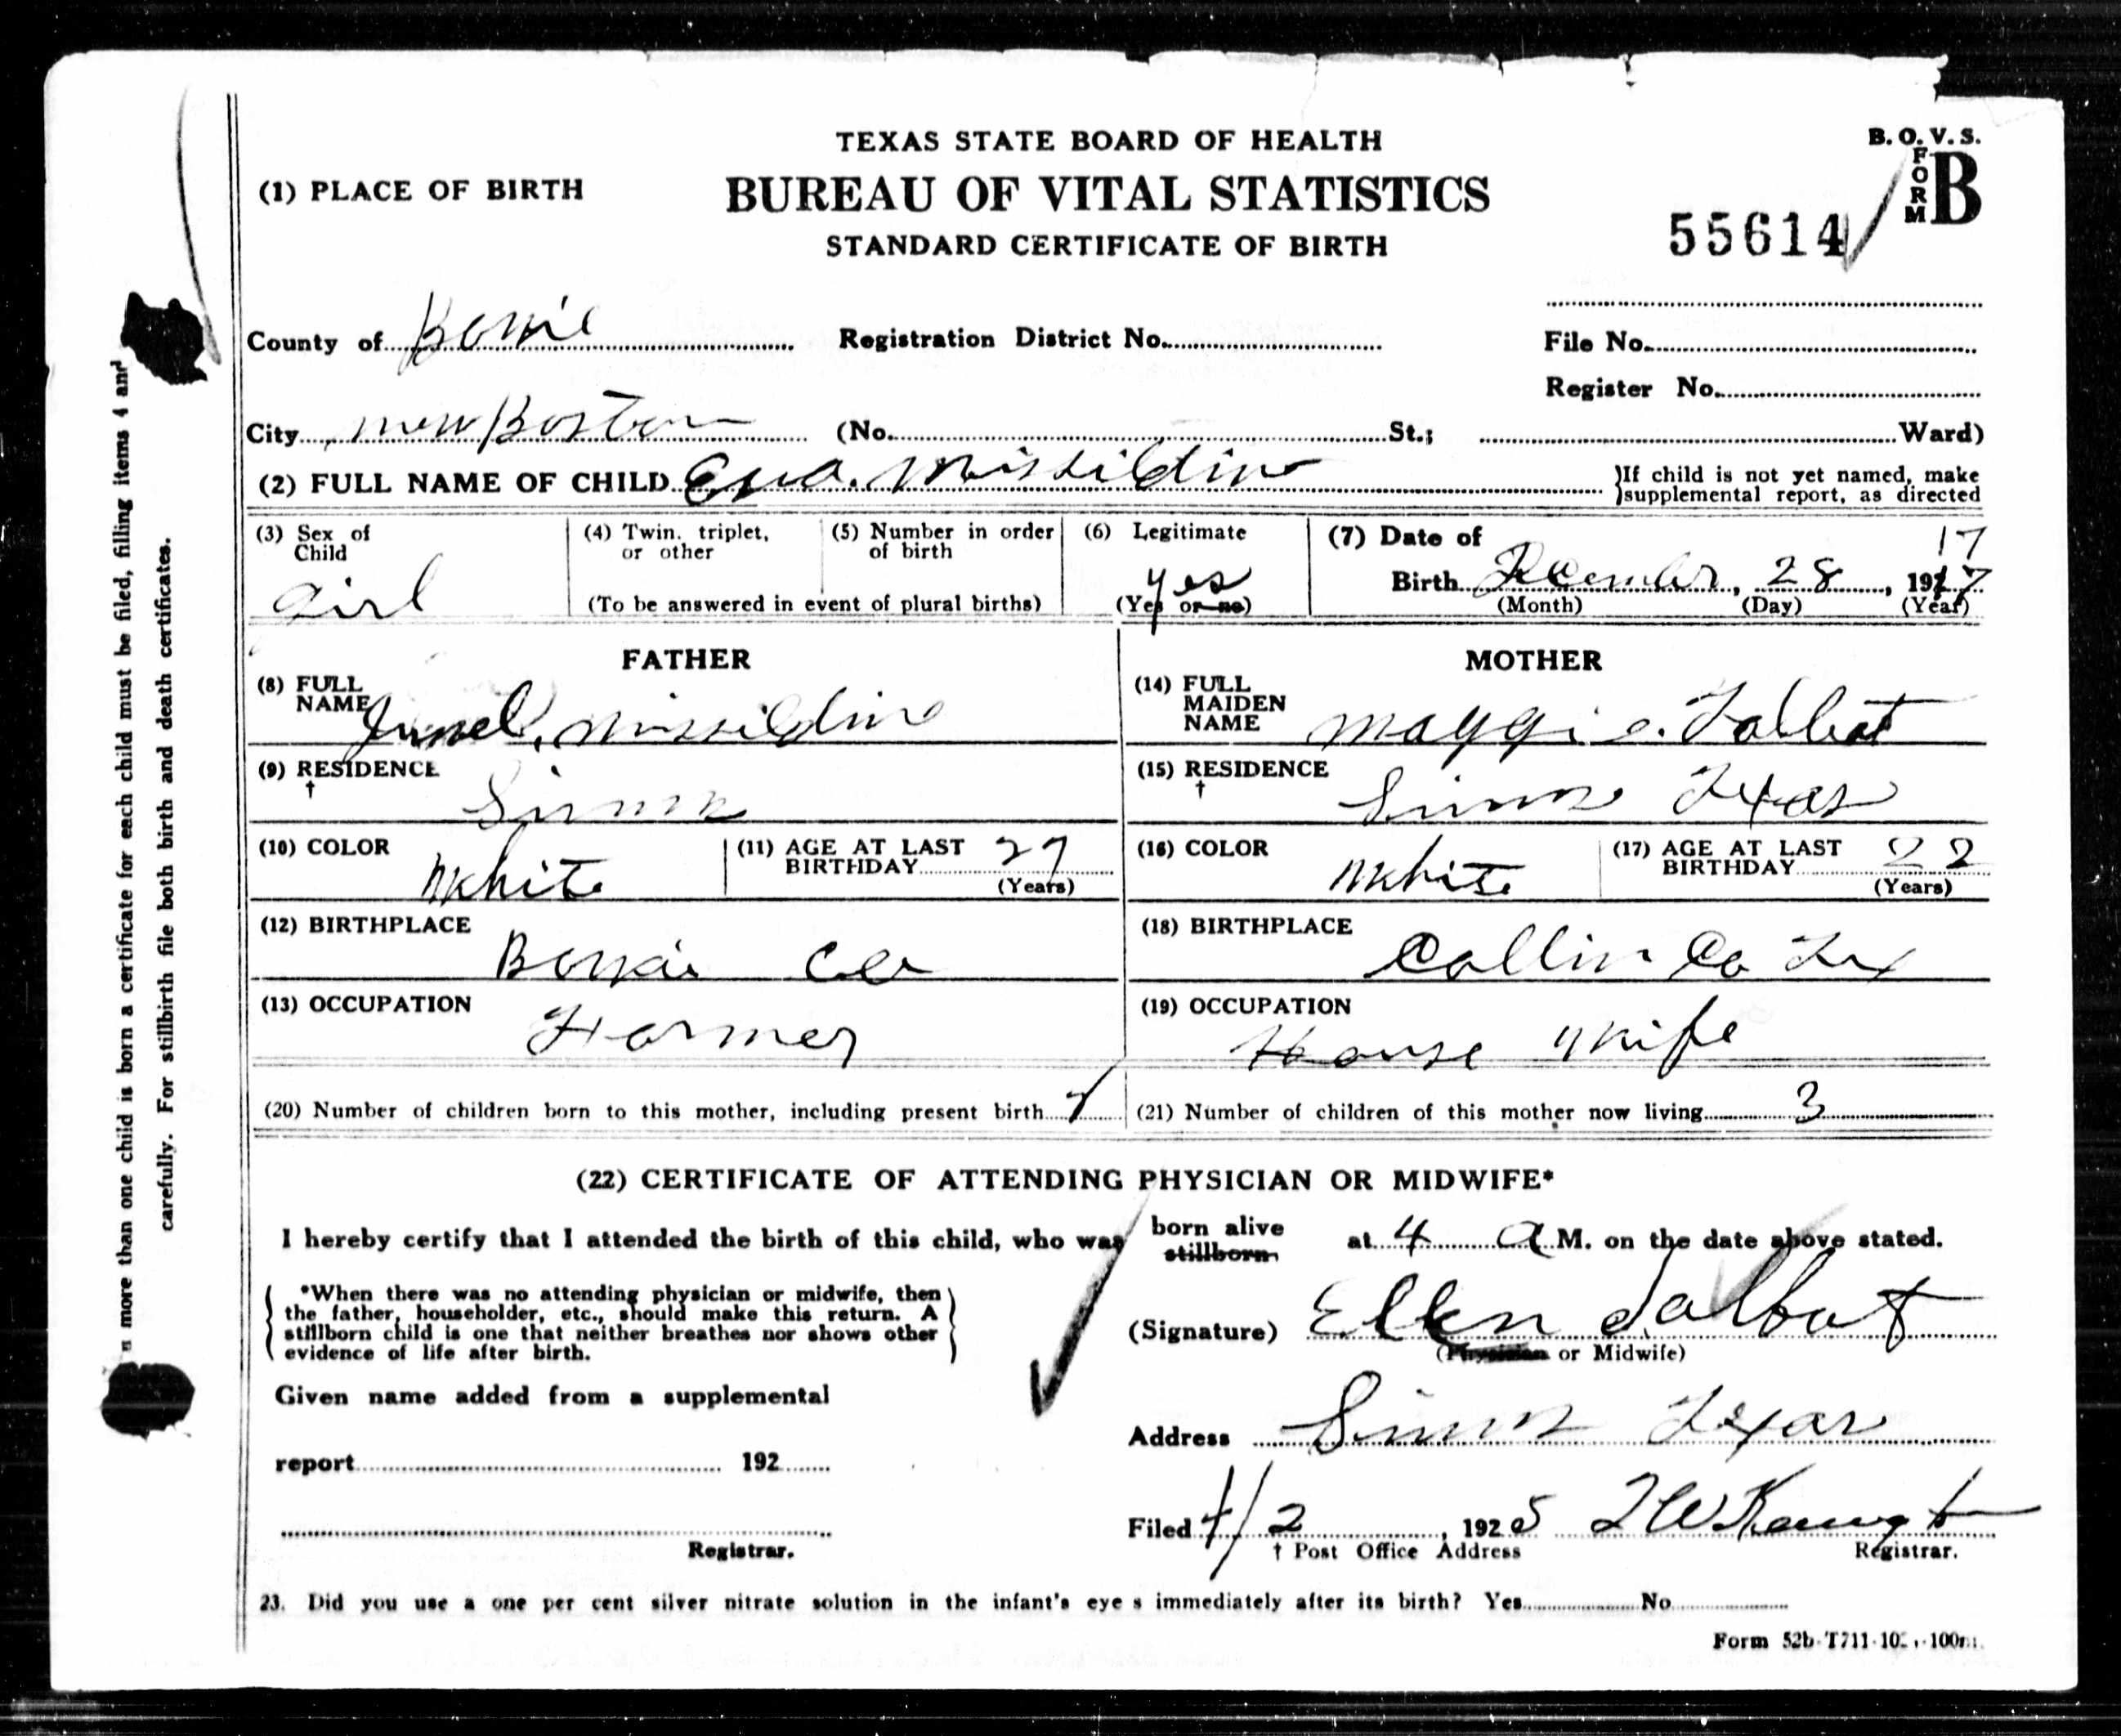 TEXAS STATE BOARD OF HEALTH
B. O. V. S.
FORM B
(1) PLACE OF BIRTH
BUREAU OF VITAL STATISTICS
55614
STANDARD CERTIFICATE OF BIRTH
County of Bowie Registration District No. File No.
Register No.
City New Boston (No. St.; Ward)
(2) FULL NAME OF CHILD Eva. Missildine }If child is not yet named, make
}supplemental report, as directed
(3) Sex of Child girl
(4) Twin. triplet, or other
(5) Number in order of birth
(To be answered in event of plural births)
(6) Legitimate yes
(Yes or no)
(7) Date of 17
Birth December, 28, 1917
(Month) (Day) (Year)
FATHER
(8) FULL NAME Missildine
(9) RESIDENCE † Simms
(10) COLOR White
(11) AGE AT LAST BIRTHDAY 27
(Years)
(12) BIRTHPLACE Bowie Co
(13) OCCUPATION Farmer
MOTHER
(14) FULL MAIDEN NAME Maggie. Talbot
(15) RESIDENCE † Simms Texas
(16) COLOR White
(17) AGE AT LAST BIRTHDAY 22
(Years)
(18) BIRTHPLACE Collin Co Tex
(19) OCCUPATION House Wife
(20) Number of children born to this mother, including present birth
(21) Number of children of this mother now living 3
(22) CERTIFICATE OF ATTENDING PHYSICIAN OR MIDWIFE*
I hereby certify that I attended the birth of this child, who was born alive stillborn at 4 a M. on the date above stated.
*When there was no attending physician or midwife, then
the father, householder, etc., should make this return. A
stillborn child is one that neither breathes nor shows other
evidence of life after birth.
(Signature) Ellen Talbot
(Physician or Midwife)
Given name added from a supplemental
Address Simms Texas
report 192
Filed 4/2, 1925
† Post Office Address Registrar.
Registrar.
23. Did you use a one per cent silver nitrate solution in the infant's eye s immediately after its birth? Yes No
Form 52b-T711
more than one child is born a certificate for each child must be filed, filling items 4 and
carefully. For stillbirth file both birth and death certificates.